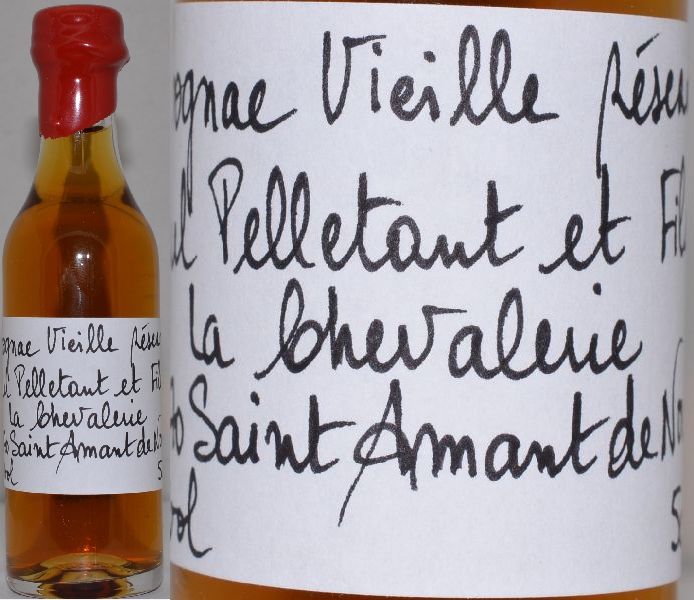 ognac Vieille réser
el Pelletant et Fil
La Chevalerie
0 Saint Amant de No
vol 5
ognac Vieille réser
el Pelletant et Fil
La Chevalerie
0 Saint Amant de No
vol 5